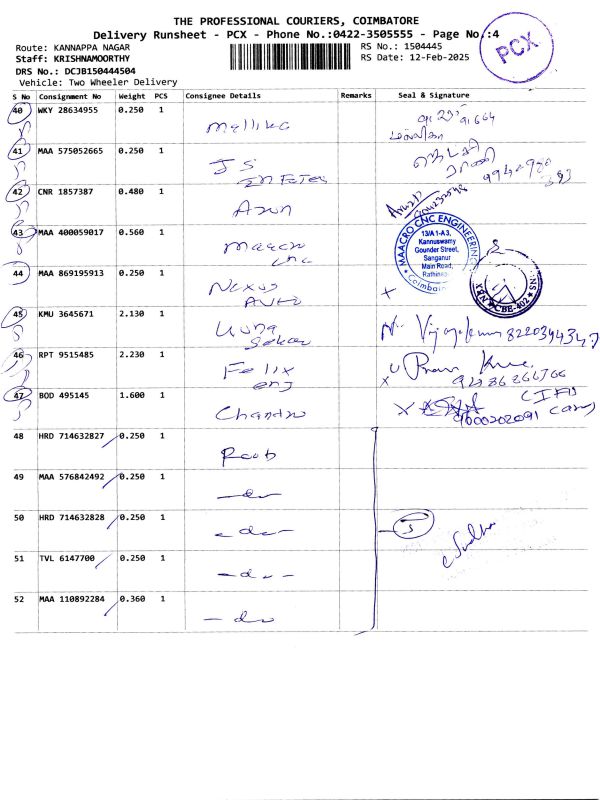 THE PROFESSIONAL COURIERS, COIMBATORE
Delivery Runsheet - PCX - Phone No.:0422-3505555 - Page No.:4
Route: KANNAPPA NAGAR
RS No.: 1504445
Staff: KRISHNAMOORTHY
RS Date: 12-Feb-2025
DRS No.: DCJB150444504
Vehicle: Two Wheeler Delivery
PCX
S No Consignment No Weight PCS Consignee Details Remarks Seal & Signature
40 WKY 28634955 0.250 1 Mallika
மல்லிகா
41 MAA 575052665 0.250 1 J S
42 CNR 1857387 0.480 1 Arun
43 MAA 400059017 0.560 1 Maacro CNC
MAACRO CNC ENGINEERING
13/A 1-A3,
Kannuswamy
Gounder Street,
Sanganur
Main Road,
Coimbatore
44 MAA 869195913 0.250 1 Nexus
Auto
CBE-402
45 KMU 3645671 2.130 1 Guna
Sekar
46 RPT 9515485 2.230 1 Felix
Eng
47 BOD 495145 1.600 1 Chandru
9600202091
48 HRD 714632827 0.250 1 Roob
49 MAA 576842492 0.250 1 - do -
50 HRD 714632828 0.250 1 - do - 5
51 TVL 6147700 0.250 1 - do -
52 MAA 110892284 0.360 1 - do